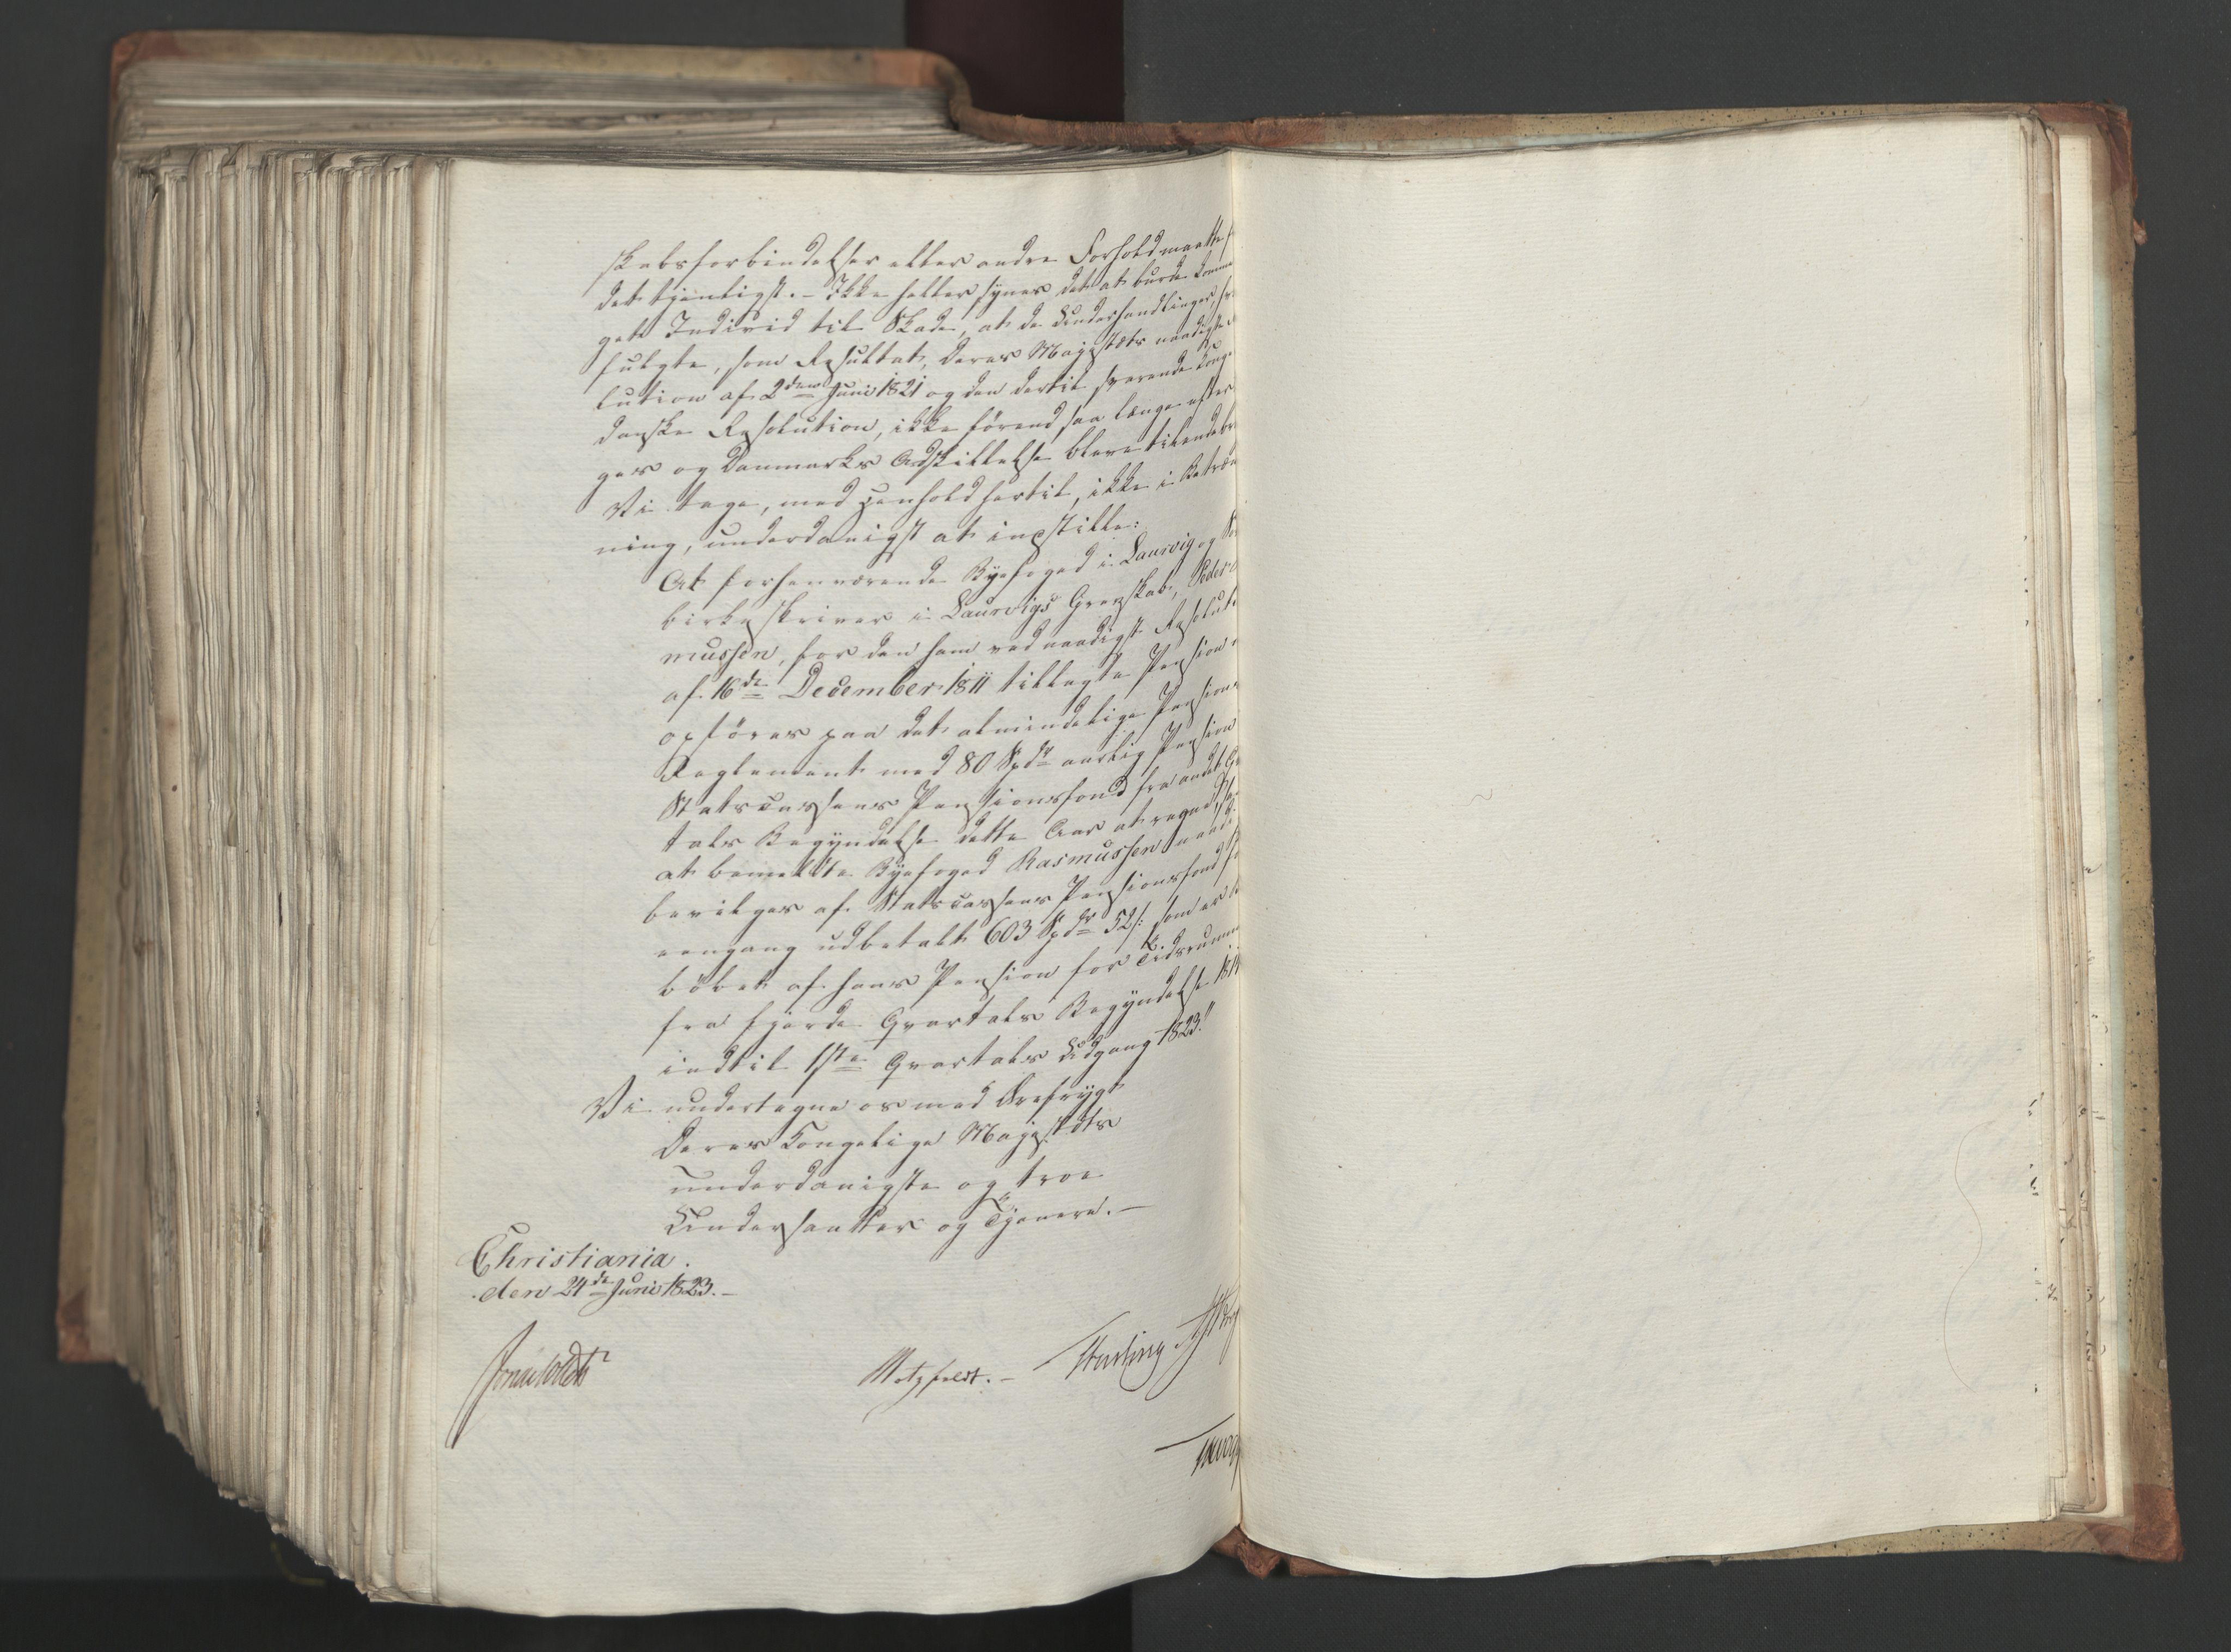 skabsforbindelser eller andre Forhold maatte
det tjenligst. – Ikke heller synes det at burde komme
get Individ til Skade, at de Underhandlinger,
fulgte, som Resultat, Deres Majestæts naadigste
lution af 2den Juni 1821 og den dertil svarende Konge
danske Resolution, ikke førend saa længe efter
ges og Danmarks Adskillelse bleve tilendebr
Vi tage, med Henhold hertil, ikke i Betænk
ning, underdanigst at indstille:
At forhenværende Byefoged i Laurvig og
birkeskriver i Laurvigs Grevskab, Peder
mussen, for den ham ved naadigst Resoluti
af 16de December 1811 tillagte Pension
opføres paa det almindelige Pensions
Reglement med 80 Spdr aarlig Pension
Statscassens Pensionsfond fra andet
tals Begyndelse dette Aar at regne,
at bemeldte Byefoged Rasmussen naadi
bevilges af Statscassens Pensionsfond
eengang udbetalt 603 Spdr 52 s. som er
løbet af hans Pension for Tidsrummet
fra fjerde Qvartals Begyndelse 181
indtil 1ste Qvartals Udgang 1823."
Vi undertegne os med Ærefrygt
Deres Kongelige Majestæts
underdanigste og troe
Undersaatter og Tjenere. –
Christiania.
den 24de Juni 1823. –
Motzfeldt. –